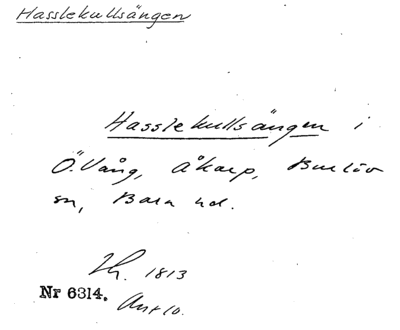 Hasslekullsängen
Hasslekullsängen i
Ö. Vång, Åkarp, Burlöv
sn, Bara hd.
Lh. 1813
Nr 6314.
Akt 10.